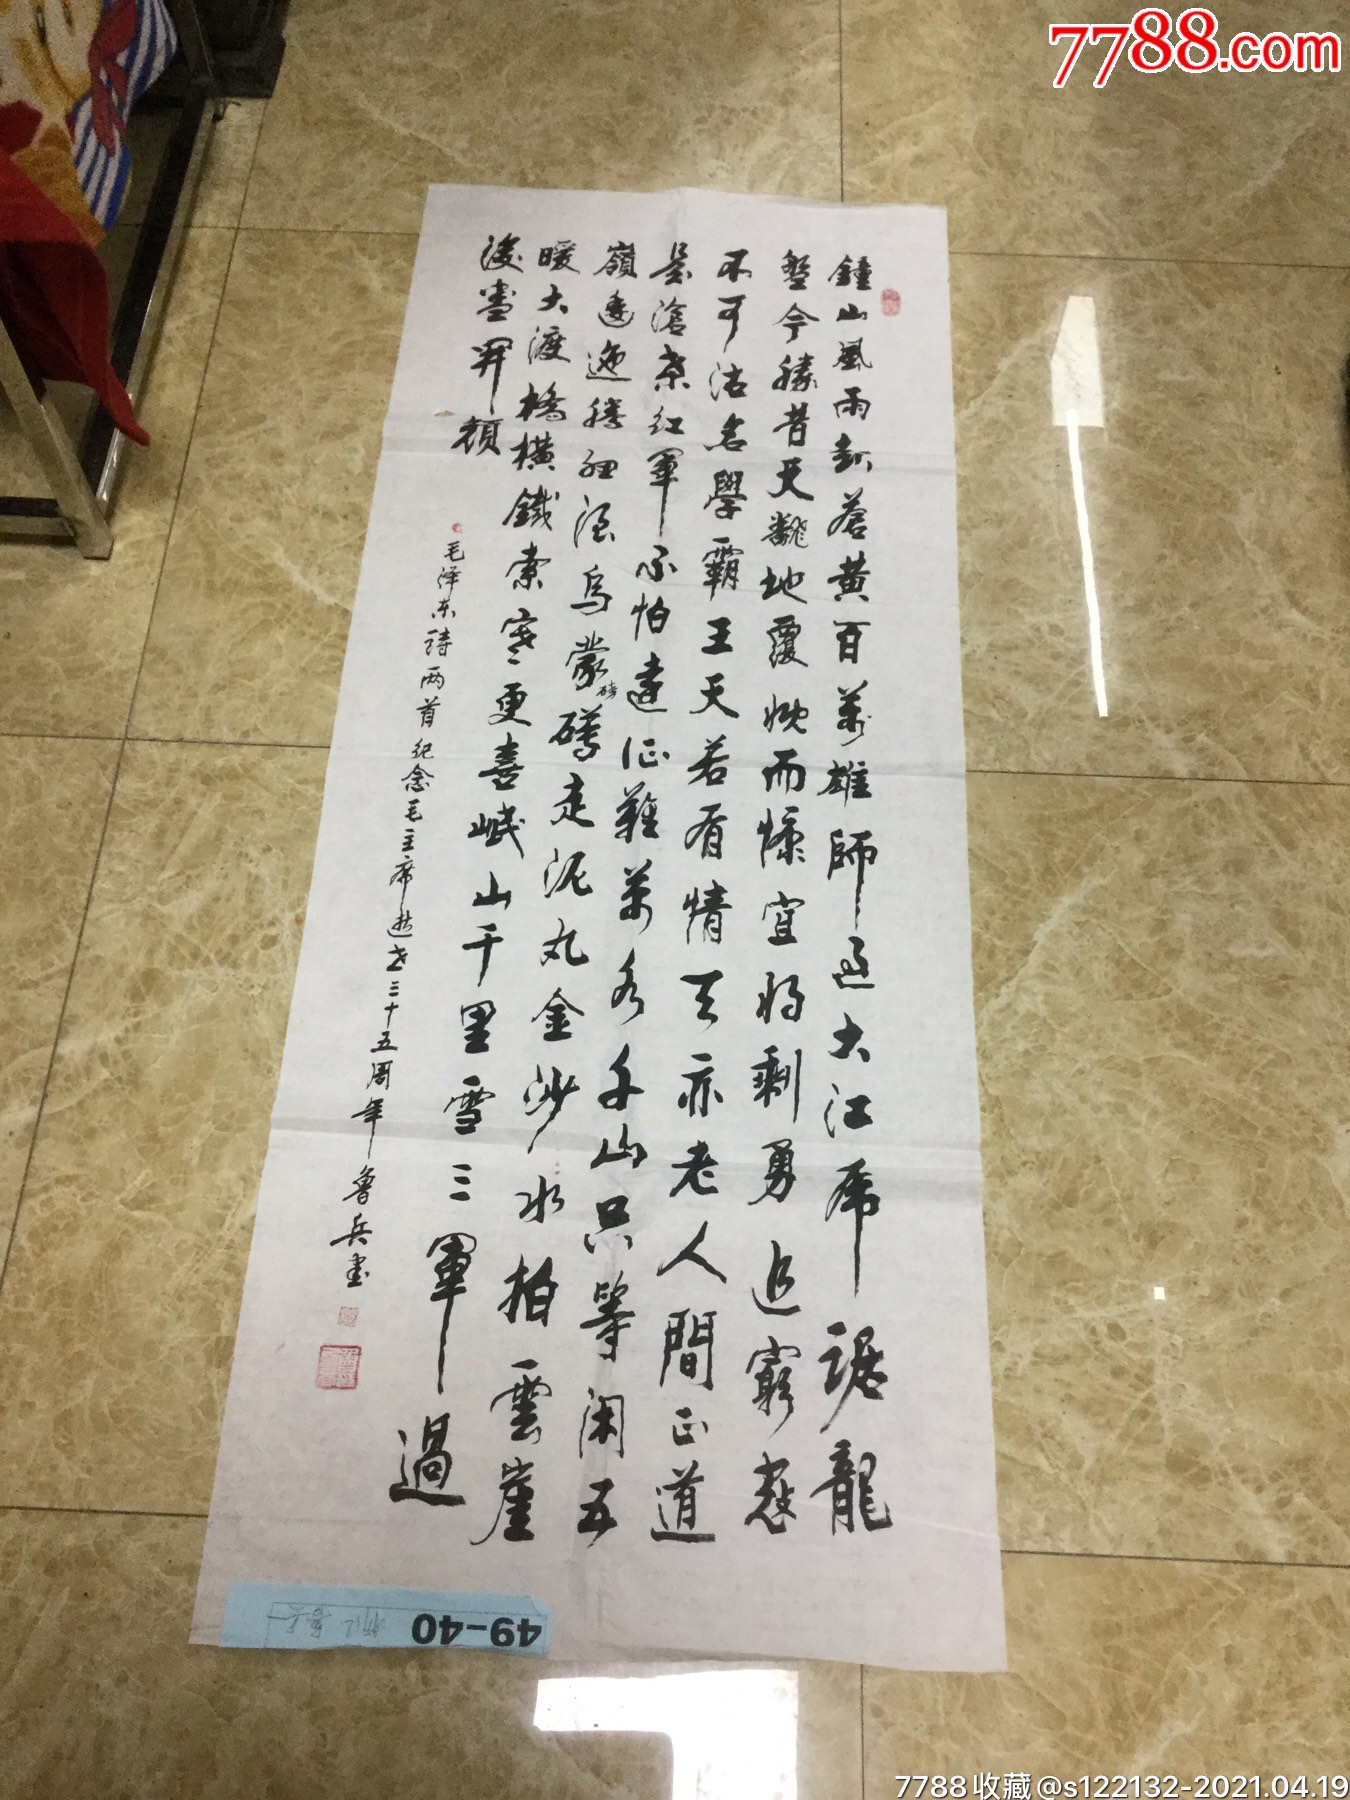 7788.com
鍾山風雨起蒼黄百萬雄師过大江虎踞龍
盤今勝昔天翻地覆慨而慷宜将剩勇追窮寇
不可沽名學霸王天若有情天亦老人間正道
是滄桑红軍不怕遠征難萬水千山只等闲五
嶺逶迤騰細浪烏蒙磅礴走泥丸金沙水拍雲崖
暖大渡橋横鐵索寒更喜岷山千里雪三軍過
後盡開顔
毛泽东詩两首纪念毛主席逝世三十五周年魯兵書
49-40
7788收藏@s122132-2021.04.19